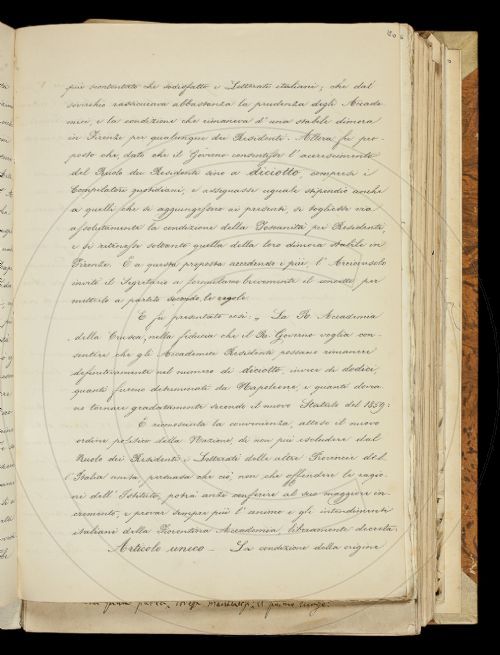 più scontentato che sodisfatto i Letterati italiani; che dal
soverchio rassicurava abbastanza la prudenza degli Accade-
mici, e la condizione che rimaneva d'una stabile dimora
in Firenze per qualunque dei Residenti. Allora fu pro-
posto che, dato che il Governo consentisse l'accrescimento
del Ruolo dei Residenti sino a diciotto, compresi i
Compilatori quotidiani, e assegnasse eguale stipendio anche
a quelli che si aggiungessero ai presenti, si togliesse via
assolutamente la condizione della Toscanità pei Residenti,
e si ritenesse soltanto quella della loro dimora stabile in
Firenze. E a questa proposta accedendo i più, l'Arciconsolo
invitò il Segretario a formularne brevemente il concetto, per
metterlo a partito secondo le regole.
E fu presentato così: „ La R. Accademia
della Crusca, nella fiducia che il R. Governo voglia con-
sentire che gli Accademici Residenti possano rimanere
definitivamente nel numero di diciotto, invece di dodici,
quanti furono determinati da Napoleone, e quanti dovea-
no tornare gradatamente secondo il nuovo Statuto del 1859:
E riconosciuta la convenienza, atteso il nuovo
ordine politico della Nazione, di non più escludere dal
Ruolo dei Residenti i Letterati delle altre Provincie del-
l'Italia unita, persuasa che ciò, non che offendere le ragio-
ni dell'Istituto, potrà anzi conferire al suo maggiore in-
cremento, e provar sempre più l'animo e gli intendimenti
italiani della Fiorentina Accademia, liberamente decreta:
Articolo unico — La condizione della origine